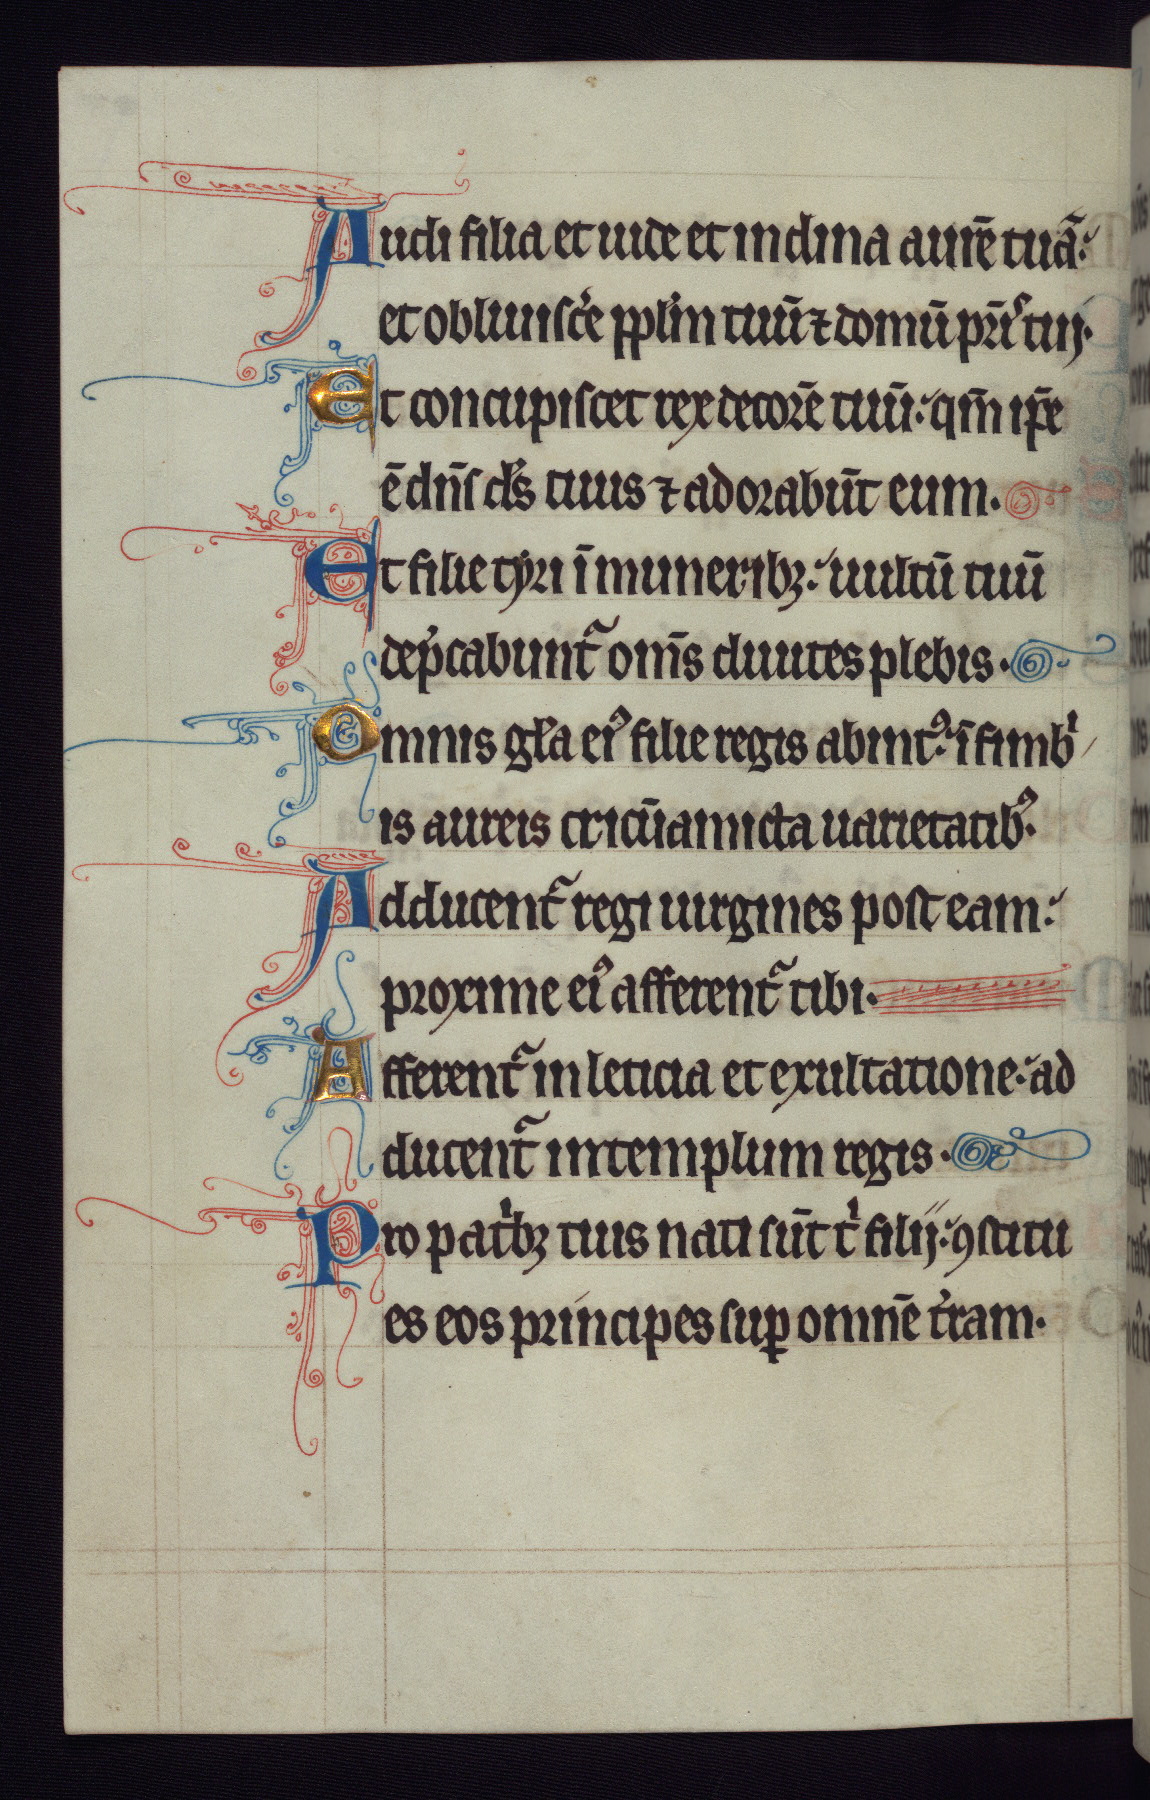 Audi filia et uide et inclina aurē tuā:
et obliuisc̾e pp̄lm tuū ⁊ domū pr̄is tuij·
Et concupiscet rex decorē tuū: qm̄ ip̄e
ē dn̄s d̄s tuus ⁊ adorabūt eum·
Et filie tyri ī muneribꝫ: uultū tuū
dep̄cabuntᷓ om̄s diuites plebis·
Omnis gl̄a eiꝰ filie regis ab intꝰ: ī fimbⁱ
is aureis cricūamicta uarietatibꝰ·
Adducentᷓ regi uirgines post eam:
proxime eiꝰ afferentᷓ tibi·
Afferentᷓ in leticia et exultatione: ad
ducentᷓ in templum regis·
Pro patⁱbꝫ tuis nati sūt tⁱ filij: ꝯstitu
es eos principes suꝑ omnē t̾ram·